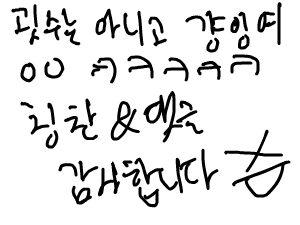 핏수는 아니고 걍잉여
ㅇㅇ ㅋㅋㅋㅋㅋ
칭찬 &
감사합니다